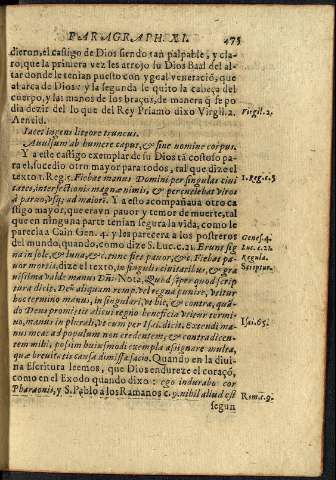 PARAGRAPH. XI. 475
dieron, el castigo de Dios siendo tan palpable, y cla-
ro, que la primera vez les arrojo su Dios Baal del al-
tar donde le tenian puesto con ygoal veneració, que
al arca de Dios: y la segunda le quito la cabeça del
cuerpo, y las manos de los braços, de manera q̃ se po
dia dezir del lo que del Rey Priamo dixo Virgil. 2.
Virgil. 2.
Aeneid.
Iacet ingens littore truncus.
Auulsum ab humere caput, & sine nomine corpus.
Y a este castigo exemplar de su Dios tã costoso pa-
ra el, sucedio otro mayor para todos, tal que dize el
texto 1. Reg. 5. Fiebat manus Domini per singulas ciui
1. Reg. c. 5
tates, interfectionis magnæ nimis, & percutiebat viros
à paruo, vsq; ad maiorẽ. Y a esto acompañaua otro ca
stigo mayor, que era vn pauor y temor de muerte, tal
que en ninguna parte tenian segura la vida, como le
parecia a Cain Gen. 4. y les parecera a los postreros
Genes. 4.
del mundo, quando, como dize S. Luc. c. 21. Erunt sig
Luc. c. 21.
na in sole, & luna, &c. tunc fiet pauor, &c. Fiebat pa-
Regula.
uor mortis, dize el texto, in singulis ciuitatibus, & gra
Scriptur.
uissima valde manus Dñi. Nota, Quod seper quod scrip
tura dicit, Deũ aliquem remp. vel regna punire, vtitur
hoc termino manus, in singulari, vt hîc, & contra, quã-
do Deus promittit alicui regno beneficia vtitur termi-
no, manus in plurali, vt cum per Isai. dicit. Extendi ma-
Isai. 65.
nus meas ad populum non credentem, & contradicen-
tem mihi, possim huiusmodi exempla assignare multa,
quæ breuitatis causa dimissa facio. Quando en la diui-
na Escritura leemos, que Dios endureze el coraçõ,
como en el Exodo quando dixo: ego indurabo cor
Pharaonis, y S. Pablo a los Romanos c. 9. nihil aliud est
Rom. c. 9.
segun